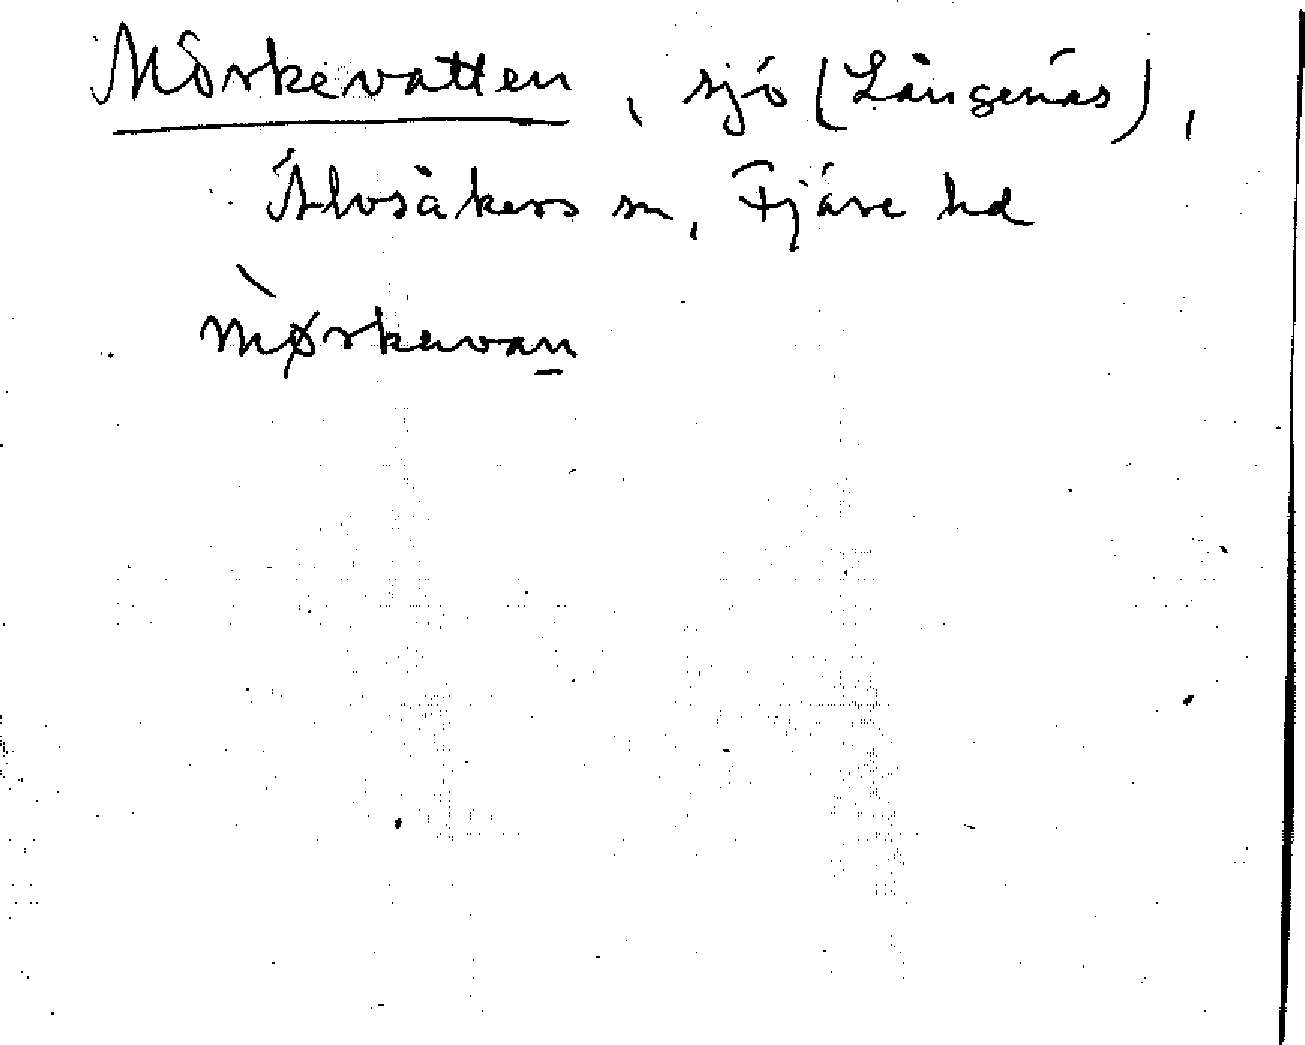 Mörkevatten, sjö (Längenäs),
Älvsåkers sn, Fjäre hd
`mørkavan